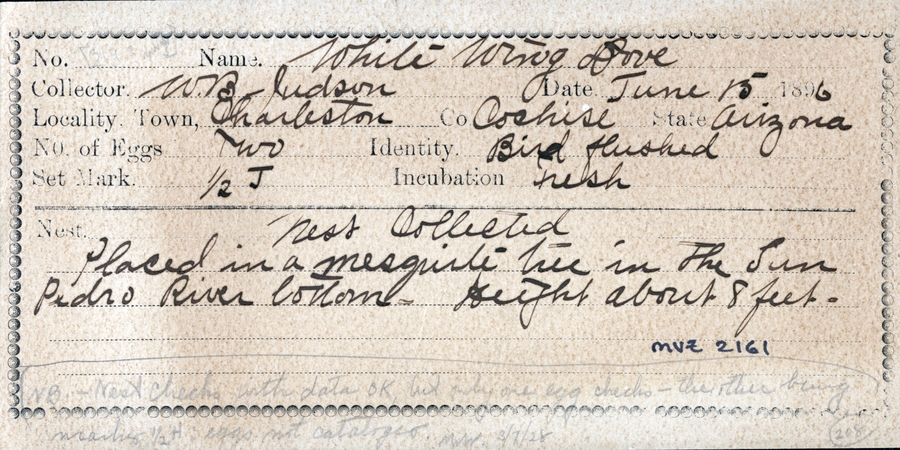 No. Name. White Wing Dove
Collector. W.B. Judson Date. June 15 1896
Locality. Town, Charleston Co Coshise State Arizona
No. of Eggs Two Identity. Bird flushed
Set Mark. 1/2 J Incubation Fresh
Nest. Nest Collected
Placed in a mesquite tree in the Sun
Pedro River bottom - Height about 8 feet -
MVZ 2161
NB. - Nest checks with data OK but only one egg checks - the other being
1/2 eggs not cataloged. 3/7/28